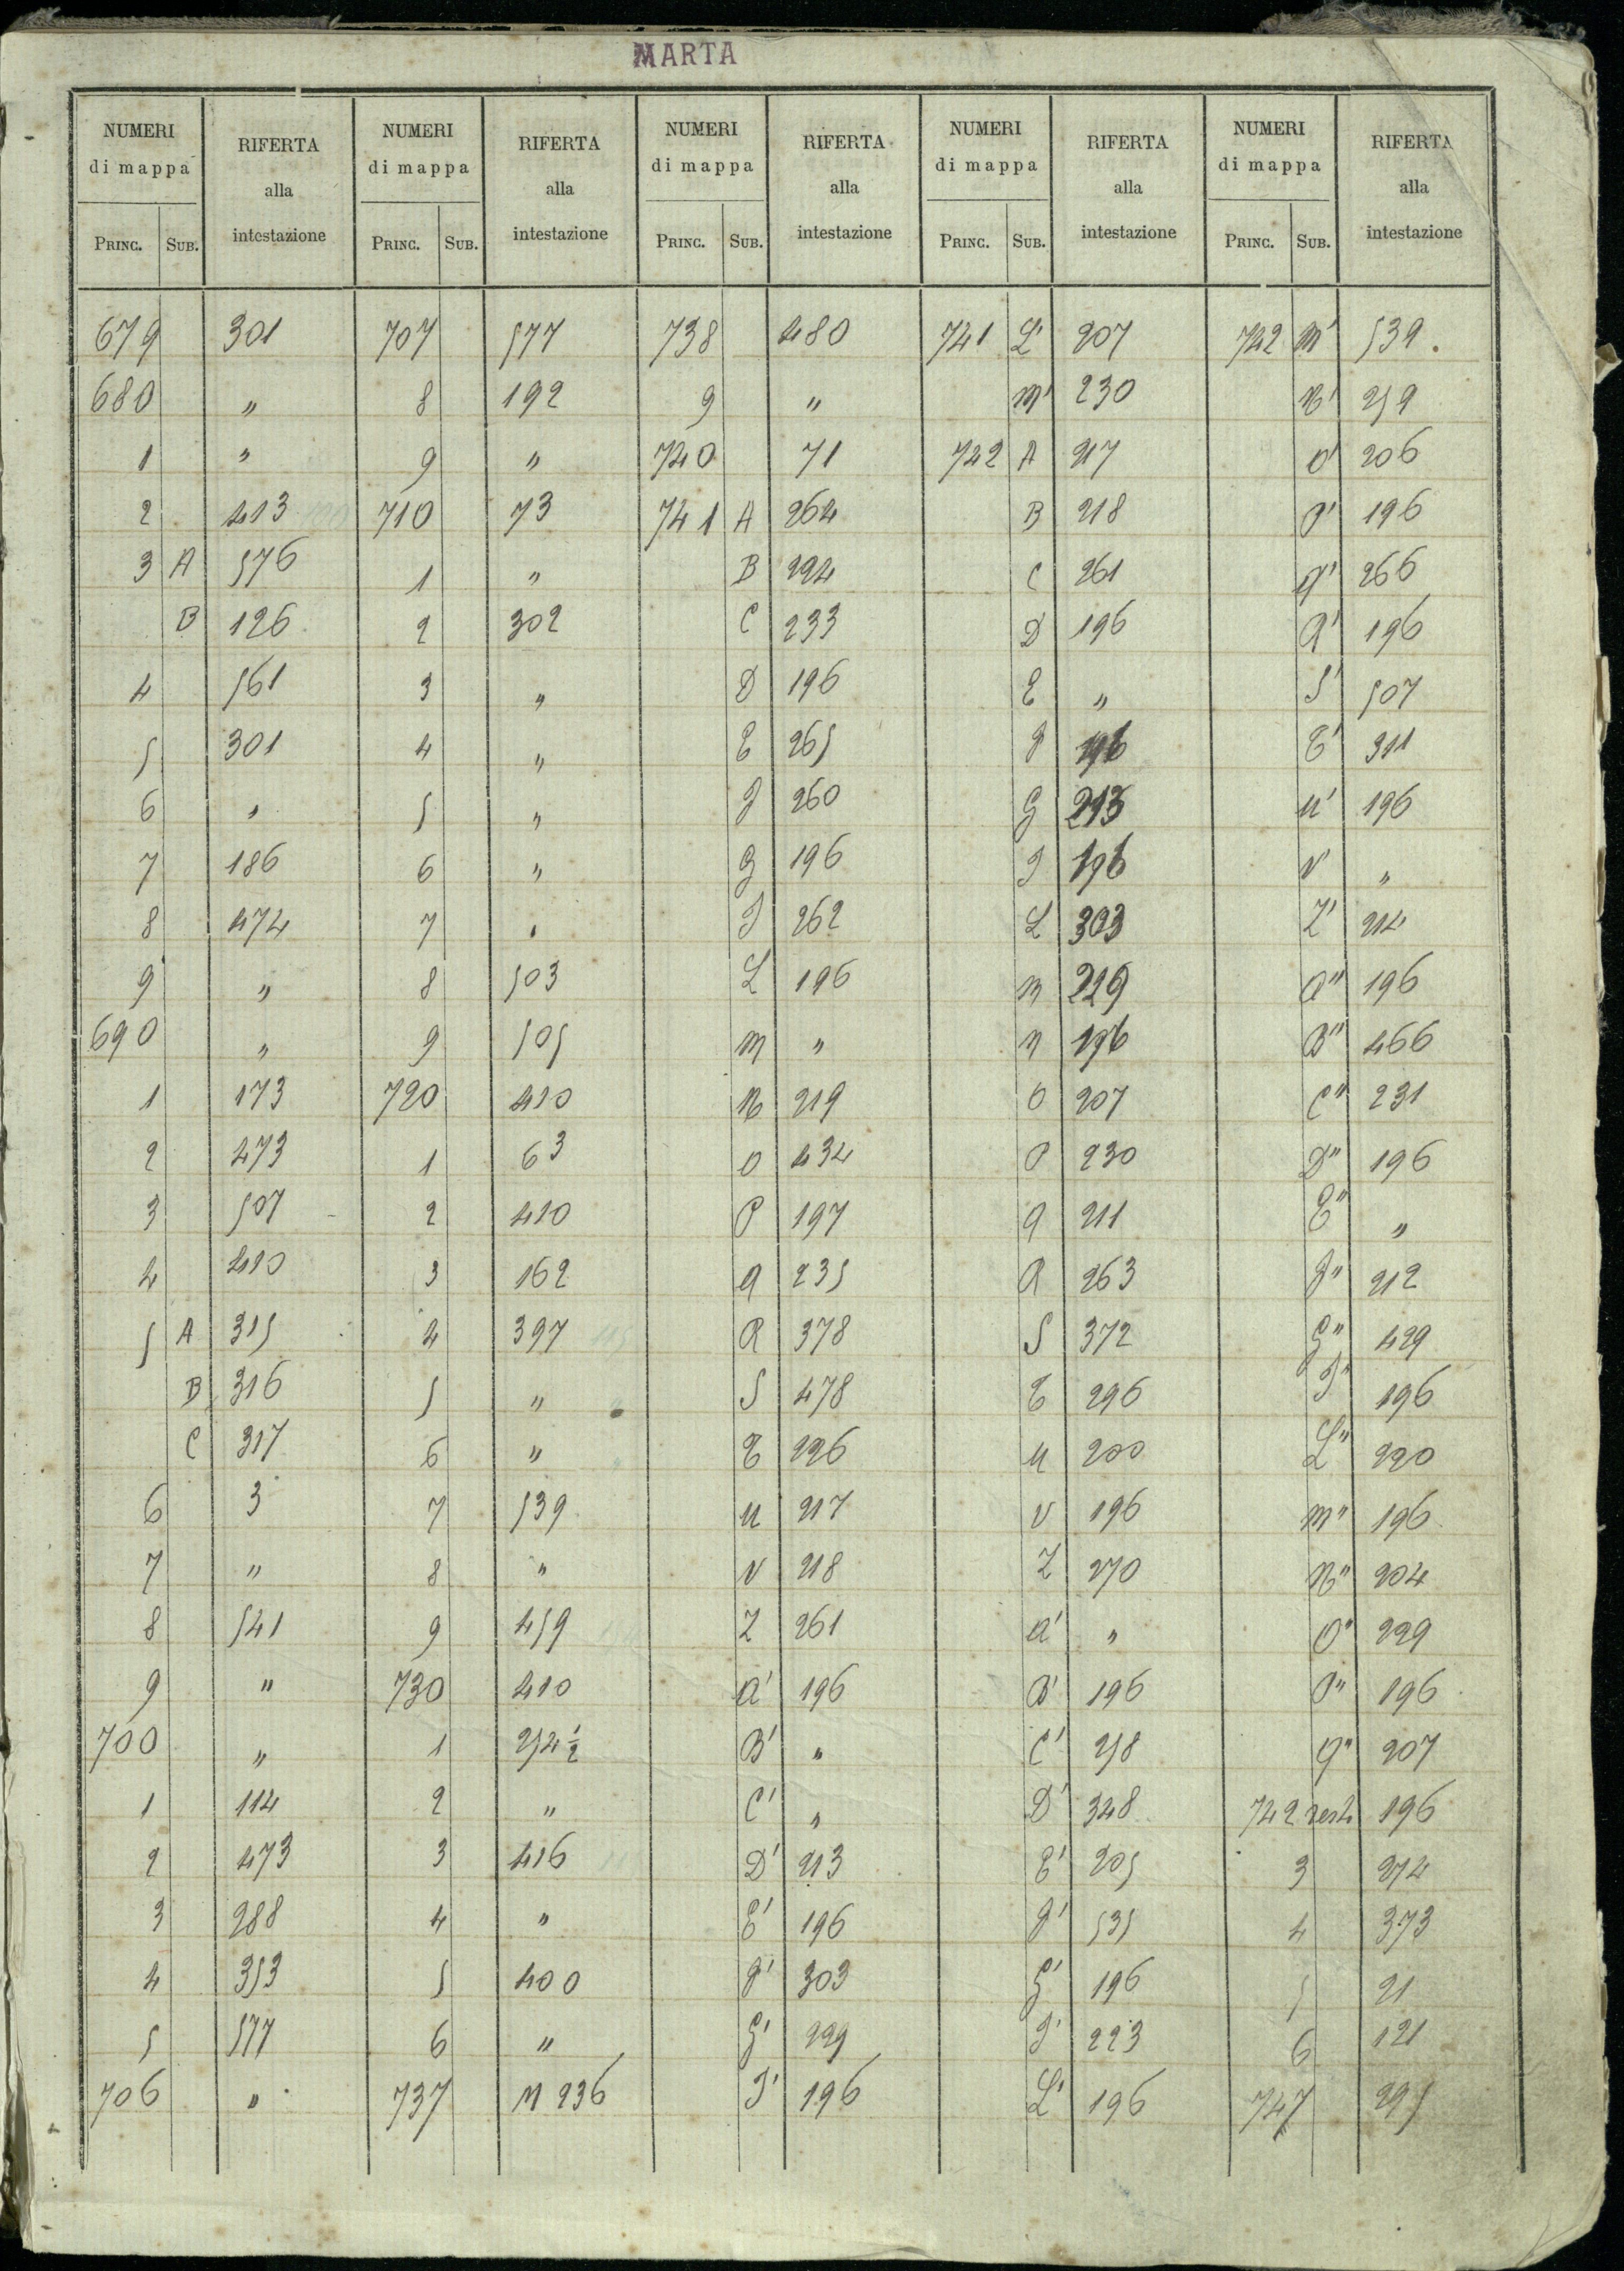 MARTA
NUMERI di mappa RIFERTA alla intestazione NUMERI di mappa RIFERTA alla intestazione NUMERI di mappa RIFERTA alla intestazione NUMERI di mappa RIFERTA alla intestazione NUMERI di mappa RIFERTA alla intestazione
PRINC. SUB. PRINC. SUB. PRINC. SUB. PRINC. SUB. PRINC. SUB.
679 301 707 577 738 480 741 L' 207 742 M' 539.
680 " 8 192 9 " M' 230 N' 259
1 " 9 " 740 71 742 A 217 O' 206
2 413 710 73 741 A 264 B 218 P' 196
3 A 576 1 " B 224 C 261 Q' 266
B 126 2 302 C 233 D 196 R' 196
4 561 3 " D 196 E " S' 507
5 301 4 " E 265 F 196 T' 311
6 " 5 " F 260 G 213 U' 196
7 186 6 " G 196 I 196 V' "
8 474 7 " I 262 L 303 Z' 214
9 " 8 503 L 196 M 229 A" 196
690 " 9 505 M " N 196 B" 466
1 173 720 410 N 219 O 207 C" 231
2 473 1 63 O 434 P 230 D" 196
3 507 2 410 P 197 Q 211 E" "
4 410 3 162 Q 235 R 263 F" 212
5 A 315 4 397 R 378 S 372 G" 429
B 316 5 " S 478 T 296 I" 196
C 317 6 " T 226 U 200 L" 220
6 3 7 539 U 217 V 196 M" 196
7 " 8 " V 218 Z 270 N" 204
8 541 9 459 Z 261 A' " O" 229
9 " 730 410 A' 196 B' 196 P" 196
700 " 1 254 1/2 B' " C' 258 Q" 207
1 114 2 " C' " D' 348 742 resto 196
2 473 3 416 D' 213 E' 205 3 274
3 288 4 " E' 196 F' 535 4 373
4 353 5 400 F' 303 G' 196 5 21
5 577 6 " G' 229 I' 223 6 121
706 " 737 M 236 I' 196 L' 196 747 295